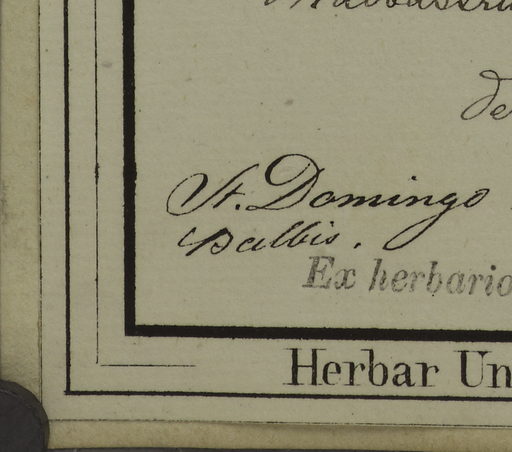 de
St. Domingo
Balbis.
Ex herbario
Herbar Un